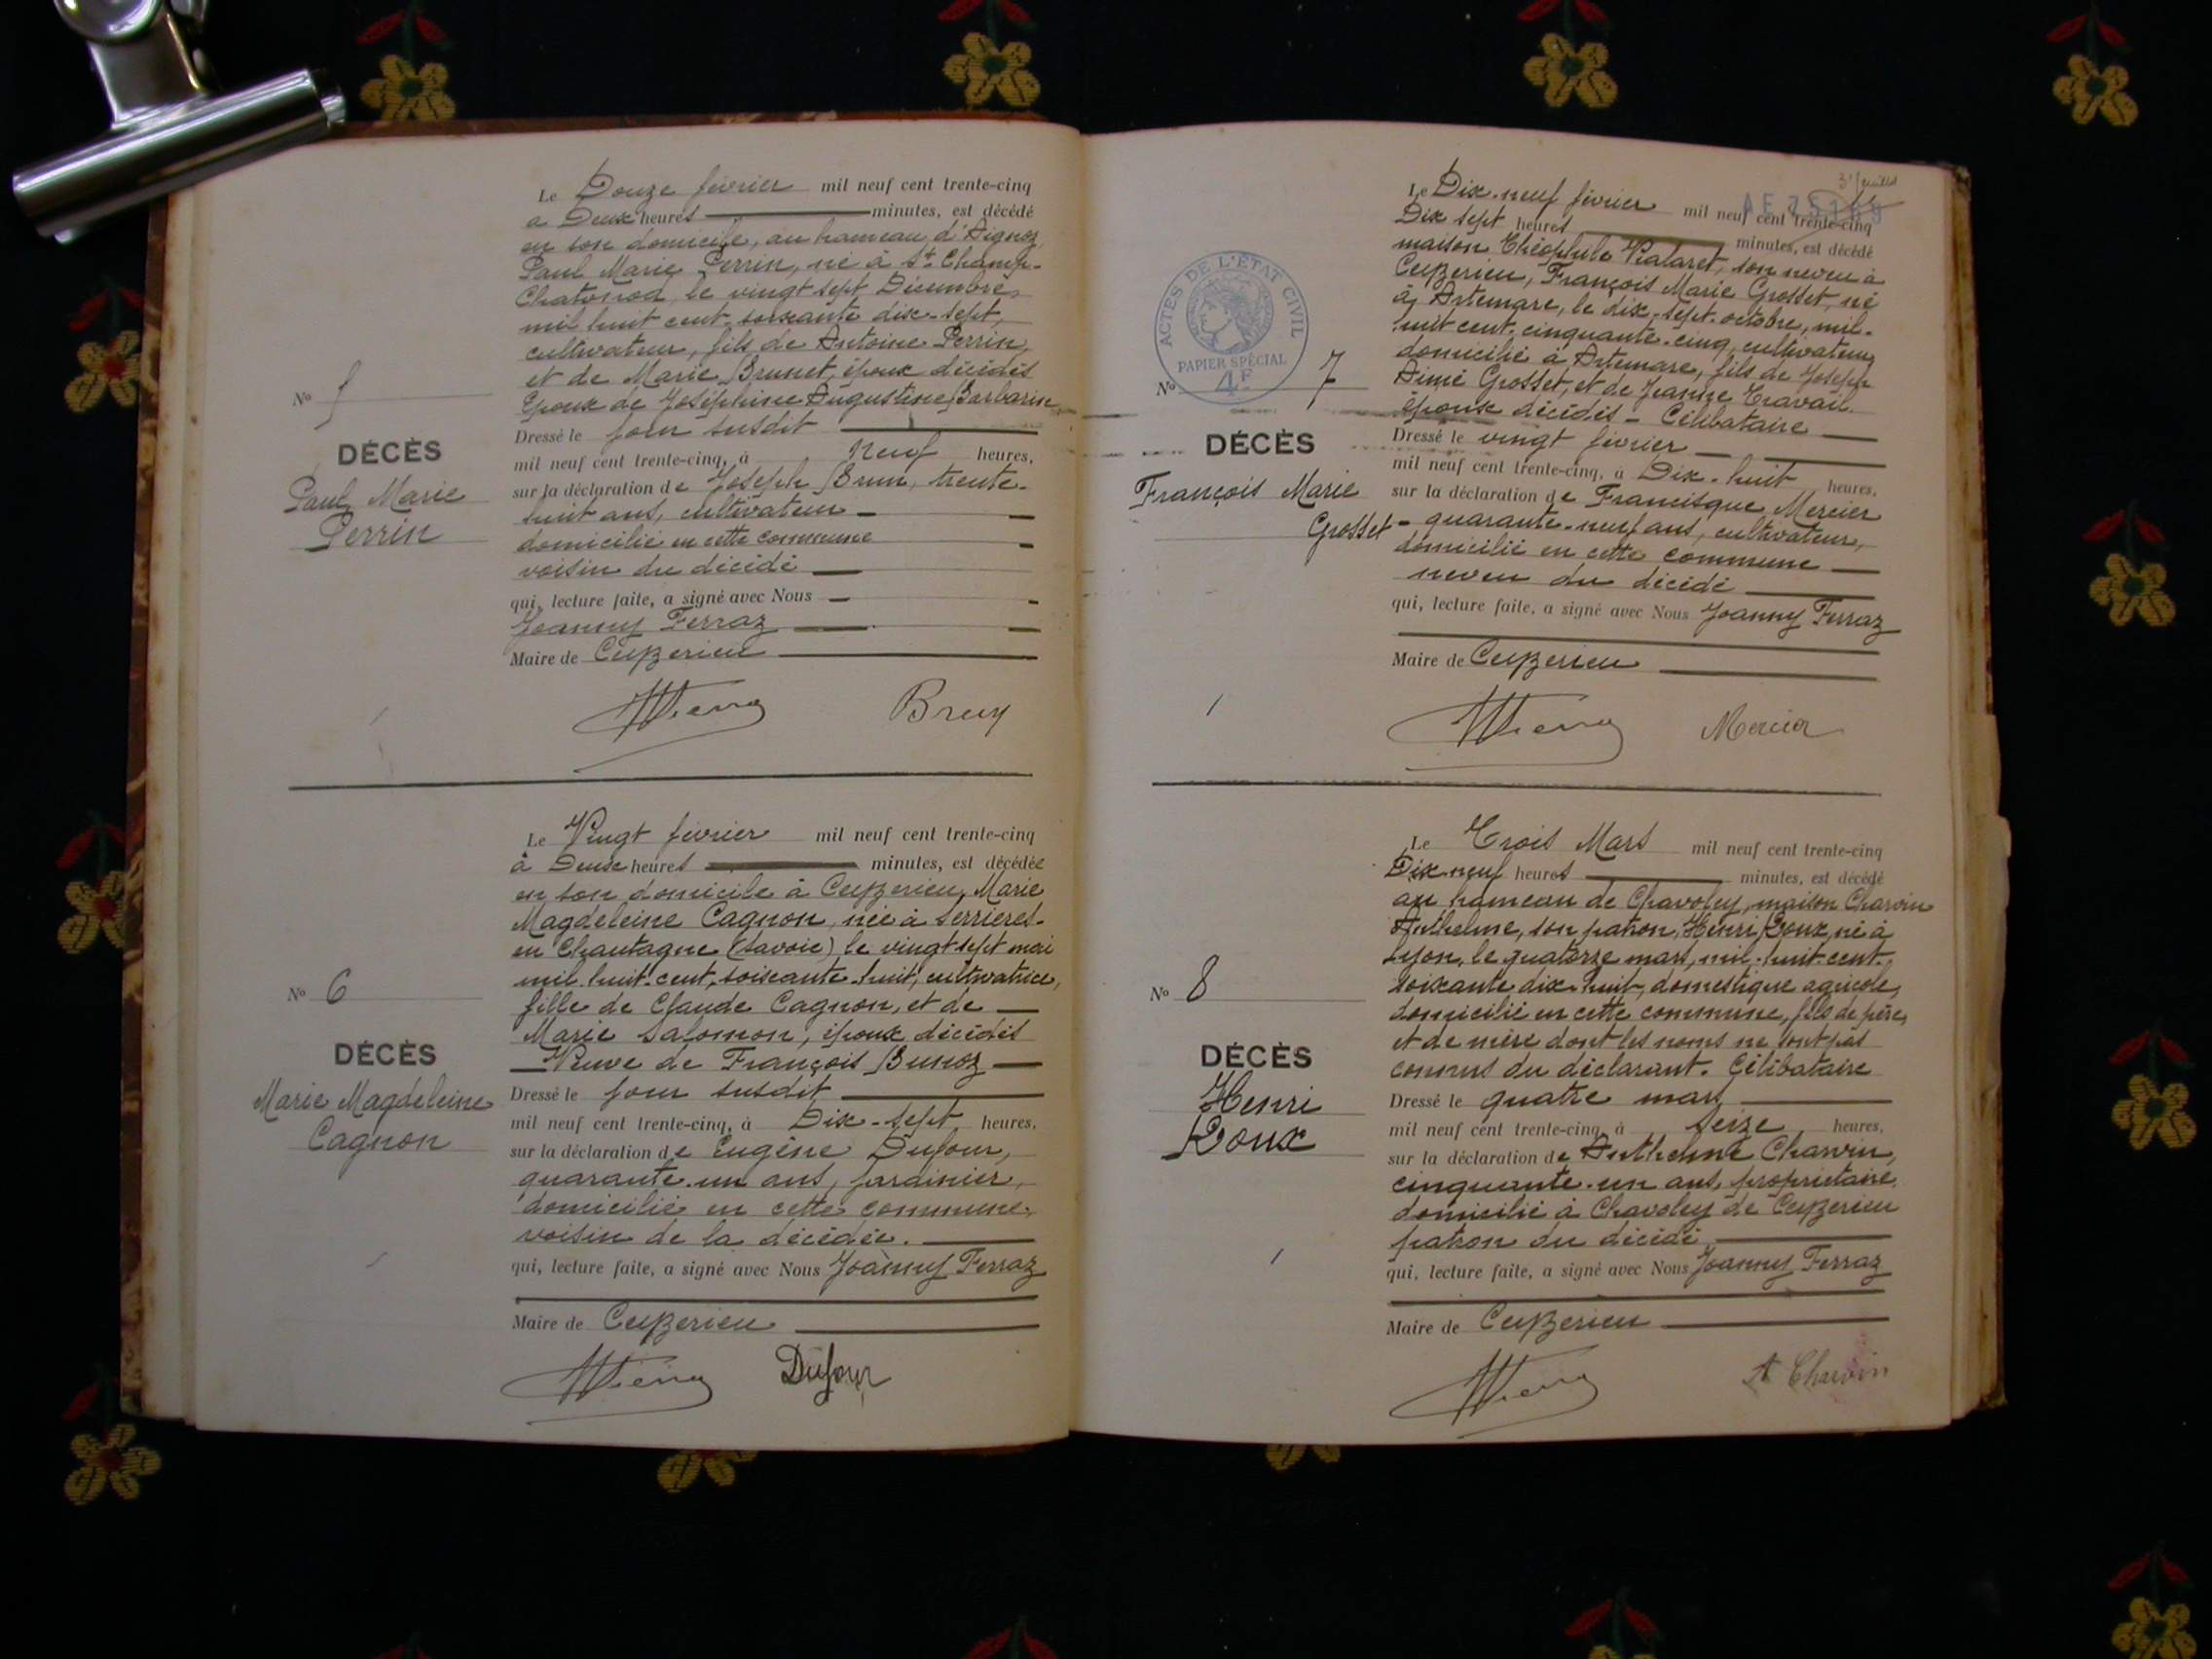 Le Douze février mil neuf cent trente-cinq
a Deux heures minutes, est décédé
en son domicile, au hameau d'Aignoz
Paul Marie Perrin, né à St Champ-
Chatonod, le vingt sept Décembre
mil huit cent soixante dix-sept,
cultivateur, fils de Antoine Perrin
et de Marie Brunet, époux décédés
Epoux de Joséphine Augustine Barbarin
No 5
DÉCÈS
Paul Marie
Perrin
Dressé le jour susdit
mil neuf cent trente-cinq, à neuf heures,
sur la déclaration de Joseph Brun, trente-
huit ans, cultivateur
domicilié en cette commune
voisin du décédé
qui, lecture faite, a signé avec Nous
Joanny Ferraz
Maire de Ceyzerieu
Brun
Le Vingt février mil neuf cent trente-cinq
à Deux heures minutes, est décédée
en son domicile à Ceyzerieu, Marie
Magdeleine Cagnon, née à Serrières-
en Chautagne (Savoie) le vingt sept mai
mil huit cent soixante-huit, cultivatrice,
fille de Claude Cagnon, et de
Marie Salomon, époux décédés
Veuve de François Bunoz
No 6
DÉCÈS
Marie Magdeleine
Cagnon
Dressé le jour susdit
mil neuf cent trente-cinq, à Dix-sept heures,
sur la déclaration de Eugène Dufour,
quarante-un ans, jardinier,
domicilié en cette commune,
voisin de la décédée.
qui, lecture faite, a signé avec Nous Joanny Ferraz
Maire de Ceyzerieu
Dufour
3e feuillet
Le Dix-neuf février mil neuf cent trente-cinq
Dix sept heures minutes, est décédé
maison Théophile Vialaret, son neveu à
Ceyzerieu, François Marie Grosset, né
à Artemare, le dix-sept octobre, mil-
huit cent cinquante-cinq, cultivateur,
domicilié à Artemare, fils de Joseph
Aimé Grosset, et de Jeanne Travail
époux décédés - Célibataire
ACTES DE L'ÉTAT CIVIL
PAPIER SPÉCIAL
4F
No 7
DÉCÈS
François Marie
Grosset
Dressé le vingt février
mil neuf cent trente-cinq, à Dix-huit heures,
sur la déclaration de Francisque Mercier
quarante-neuf ans, cultivateur,
domicilié en cette commune
neveu du décédé
qui, lecture faite, a signé avec Nous Joanny Ferraz
Maire de Ceyzerieu
Mercier
Le Trois Mars mil neuf cent trente-cinq
Dix-neuf heures minutes, est décédé
au hameau de Chavoley, maison Charvin
Anthelme, son patron, Henri Roux, né à
Lyon, le quatorze mars, mil-huit-cent-
soixante dix-huit, domestique agricole,
domicilié en cette commune, fils de père,
et de mère dont les noms ne sont pas
connus du déclarant. Célibataire
No 8
DÉCÈS
Henri
Roux
Dressé le quatre mars
mil neuf cent trente-cinq, à seize heures,
sur la déclaration de Anthelme Charvin,
cinquante-un ans, propriétaire
domicilié à Chavoley de Ceyzerieu
patron du décédé
qui, lecture faite, a signé avec Nous Joanny Ferraz
Maire de Ceyzerieu
A Charvin